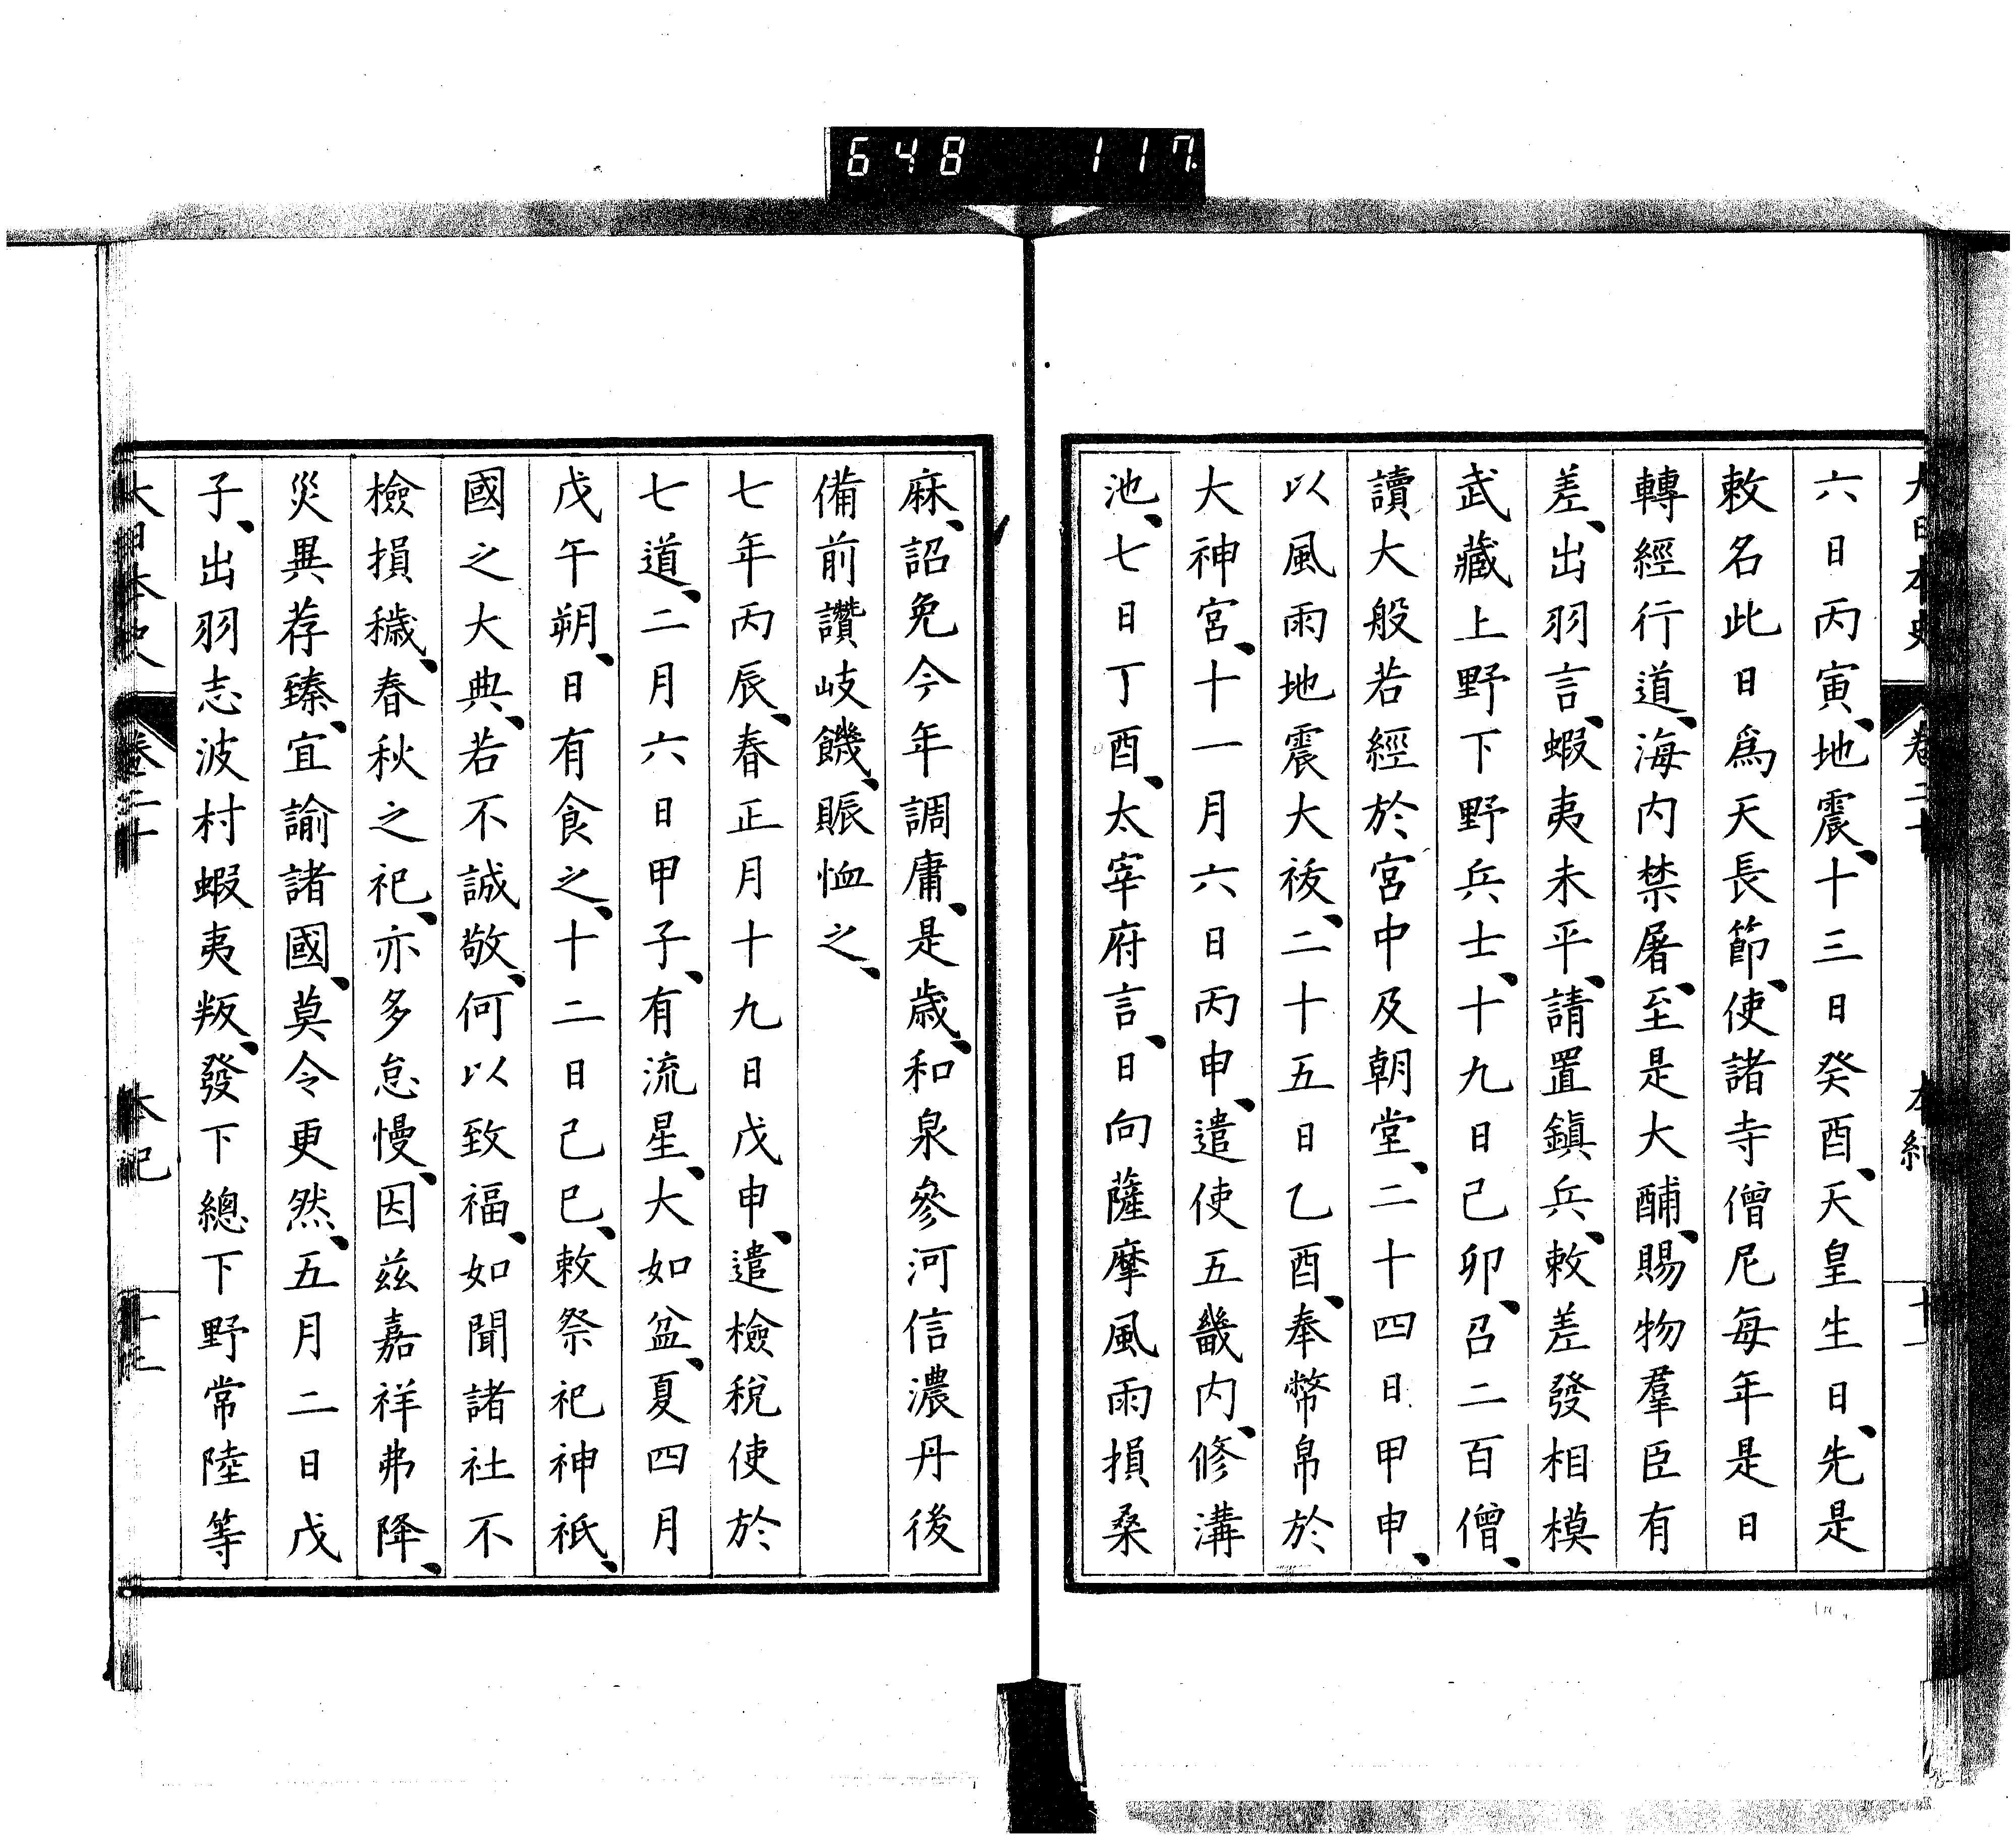 648 117
大日本史 卷二十 本紀 十一
六日丙寅、地震、十三日癸酉、天皇生日、先是
敕名此日爲天長節、使諸寺僧尼每年是日
轉經行道、海內禁屠、至是大酺、賜物羣臣有
差、出羽言、蝦夷未平、請置鎭兵、敕差發相模
武藏上野下野兵士、十九日己卯、召二百僧、
讀大般若經於宮中及朝堂、二十四日甲申、
以風雨地震大祓、二十五日乙酉、奉幣帛於
大神宮、十一月六日丙申、遣使五畿內、修溝
池、七日丁酉、太宰府言、日向薩摩風雨損桑
麻、詔免今年調庸、是歲、和泉參河信濃丹後
備前讚岐饑、賑恤之、
七年丙辰、春正月十九日戊申、遣檢稅使於
七道、二月六日甲子、有流星、大如盆、夏四月
戊午朔、日有食之、十二日己巳、敕祭祀神祇、
國之大典、若不誠敬、何以致福、如聞諸社不
檢損穢、春秋之祀、亦多怠慢、因茲嘉祥弗降、
災異荐臻、宜諭諸國、莫令更然、五月二日戊
子、出羽志波村蝦夷叛、發下總下野常陸等
大日本史 卷二十 本紀